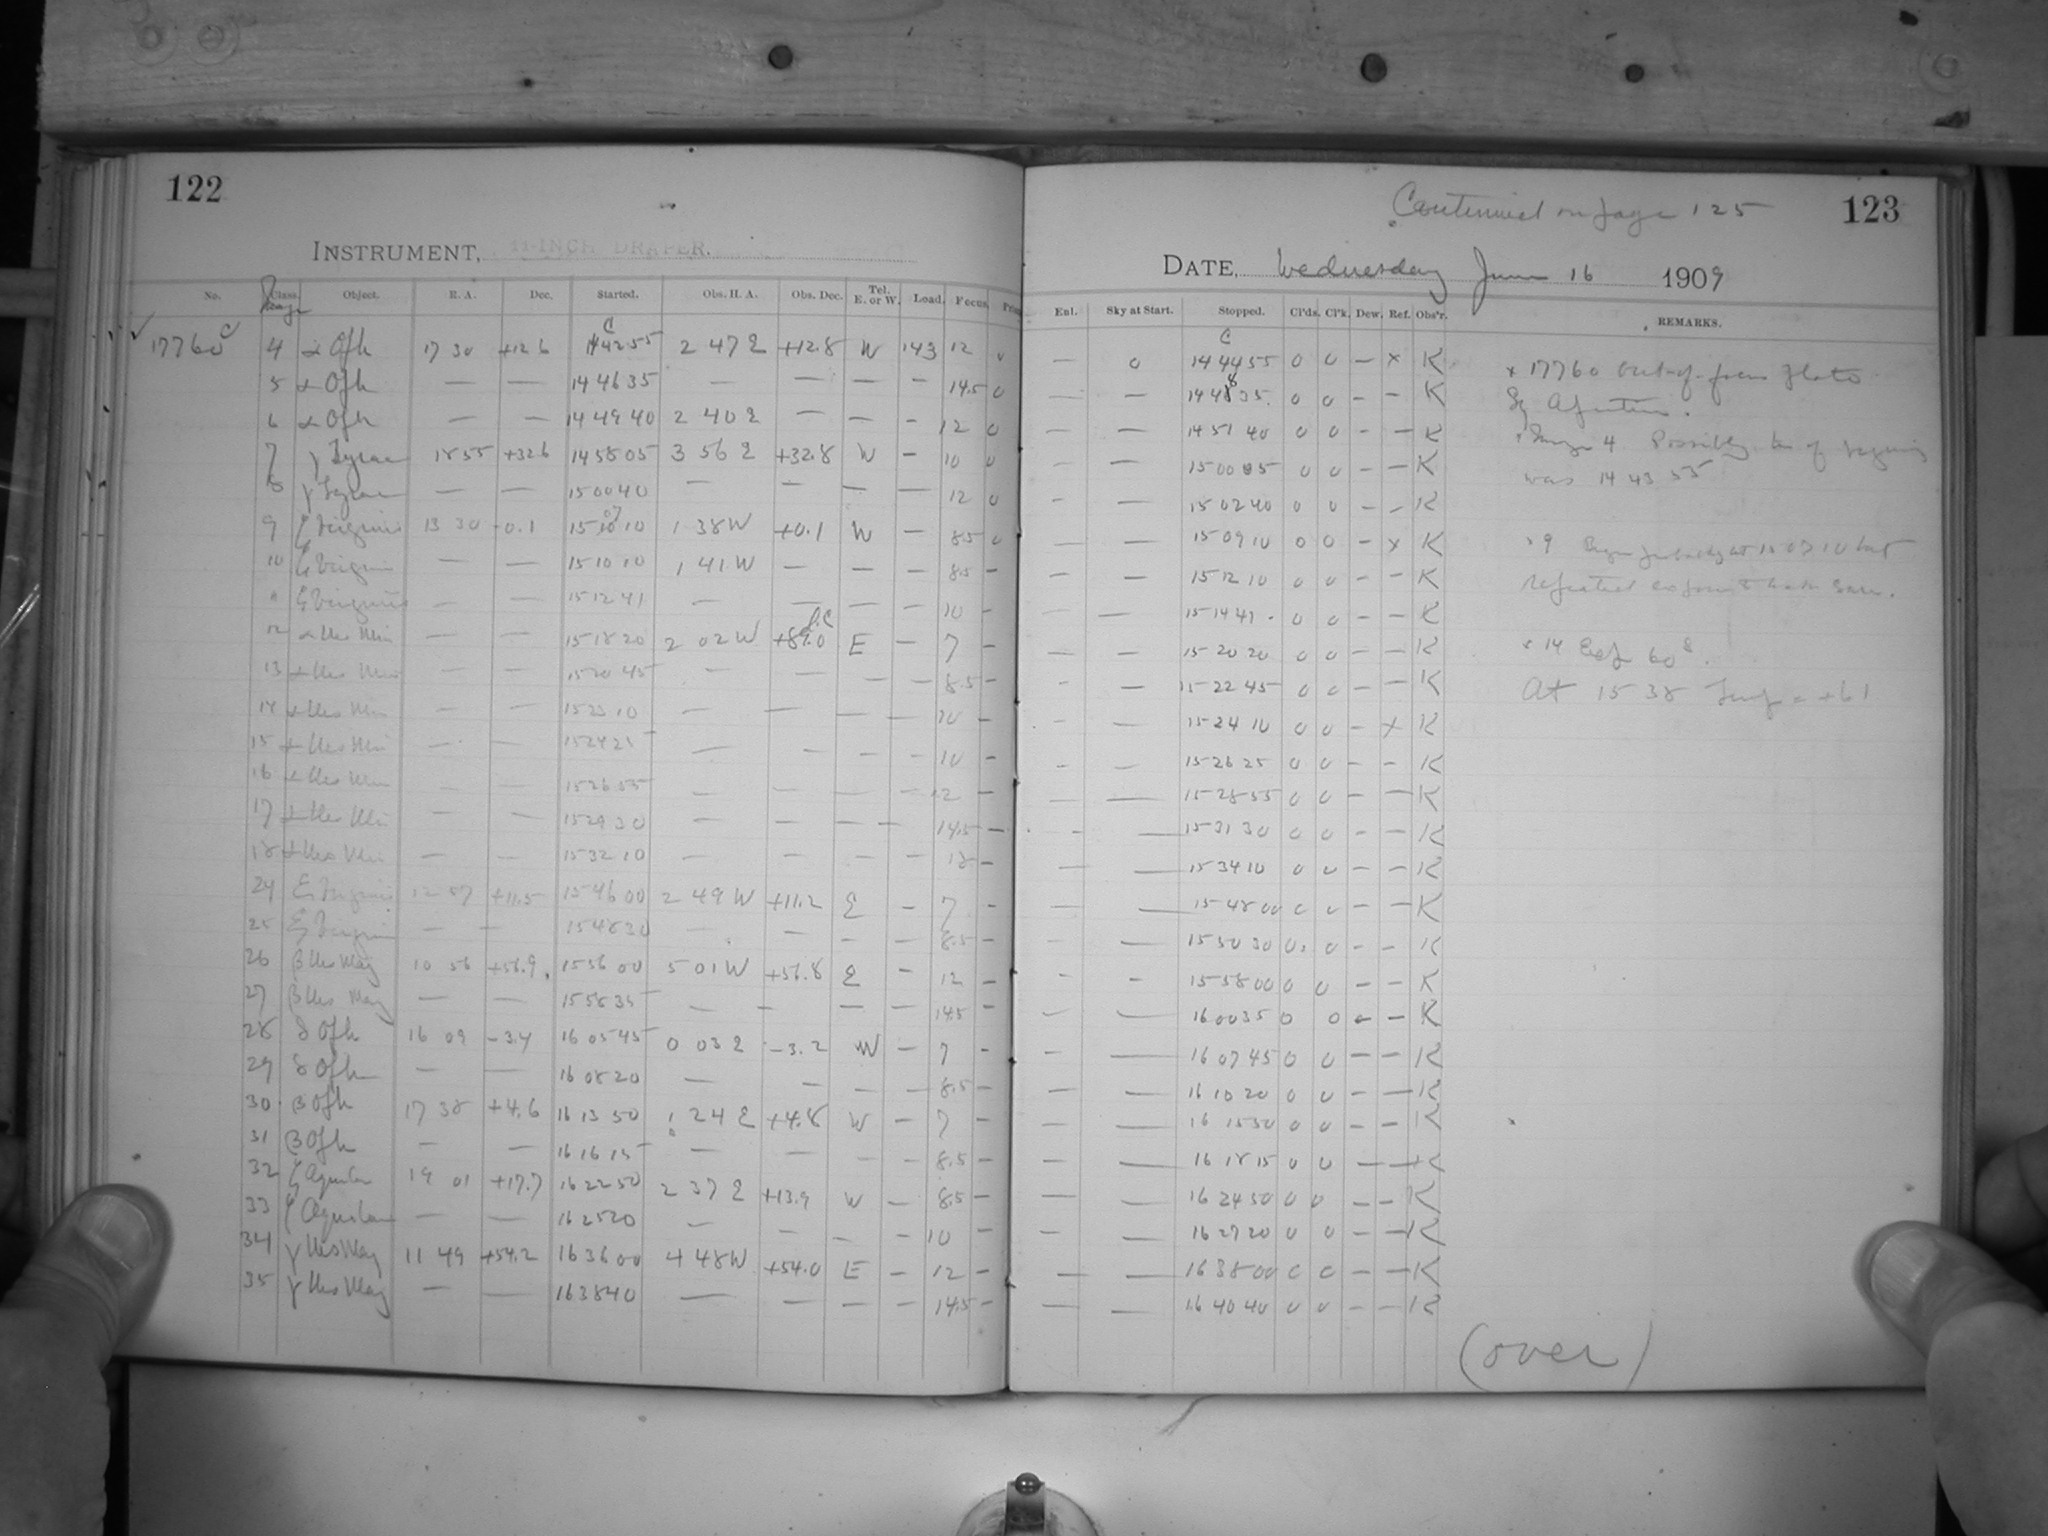 122
INSTRUMENT, 11-INCH DRAPER.
No. Class. Object. R. A. Dec. Started. Obs. H. A. Obs. Dec. Tel. E. or W. Load. Focus.
Image
17760 4 α Oph 17 30 +12.6 14 42 55 2 47 E +12.8 W 143 12 0
5 α Oph — — 14 46 35 — — — — 14.5 0
6 α Oph — — 14 49 40 2 40 E — — — 12 0
7 γ Lyrae 18 55 +32.6 14 58 05 3 56 E +32.8 W — 10 0
8 γ Lyrae — — 15 00 40 — — — — 12 0
9 ζ Virginis 13 30 -0.1 15 10 10 1 38 W +0.1 W — 8.5 0
07
10 ζ Virginis — — 15 10 10 1 41 W — — — 8.5 —
11 ζ Virginis — — 15 12 41 — — — — 10 —
12 α Urs Min — — 15 18 20 2 02 W E — 7
13 α Urs Min — — 15 20 45 — — — — 8.5 —
14 α Urs Min — — 15 23 10 — — — — 10 —
15 α Urs Min — — 15 24 25 — — — — 10 —
16 α Urs Min — — 15 26 55 — — — — 12 —
17 α Urs Min — — 15 29 30 — — — — 14.5 —
18 α Urs Min — — 15 32 10 — — — — 18 —
24 ε Virginis 12 57 +11.5 15 46 00 2 49 W +11.2 E — 7 —
25 ε Virginis — — 15 48 30 — — — — 8.5 —
26 β Urs Maj 10 56 +56.9 15 56 00 5 01 W +56.8 E — 12 —
27 β Urs Maj — — 15 58 35 — — — — 14.5 —
28 δ Oph 16 09 -3.4 16 05 45 0 03 E -3.2 W — 7 —
29 δ Oph — — 16 08 20 — — — — 8.5 —
30 β Oph 17 38 +4.6 16 13 50 1 24 E +4.8 W — 7 —
31 β Oph — — 16 16 15 — — — — 8.5 —
32 ζ Aquilae 19 01 +17.7 16 22 50 2 37 E +13.9 W — 8.5 —
33 ζ Aquilae — — 16 25 20 — — — — 10 —
34 γ Urs Maj 11 49 +54.2 16 36 00 4 48 W +54.0 E — 12 —
35 γ Urs Maj — — 16 38 40 — — — — 14.5 —
Continued on page 125
123
DATE, Wednesday June 16 1909
Enl. Sky at Start. Stopped. Cl'ds. Cl'k. Dew. Ref. Obs'r. REMARKS.
— 0 14 44 55 0 0 — x K
— — 14 48 35 0 0 — — K
— — 14 51 40 0 0 — — K
— — 15 00 05 0 0 — — K
— — 15 02 40 0 0 — — K
— — 15 09 10 0 0 — x K
— — 15 12 10 0 0 — — K
— — 15 14 41 0 0 — — K
— — 15 20 20 0 0 — — K
— — 15 22 45 0 0 — — K
— — 15 24 10 0 0 — x K
— — 15 26 25 0 0 — — K
— — 15 28 55 0 0 — — K
— — 15 31 30 0 0 — — K
— — 15 34 10 0 0 — — K
— — 15 48 00 0 0 — — K
— — 15 50 30 0 0 — — K
— — 15 58 00 0 0 — — K
— — 16 00 35 0 0 — — K
— — 16 07 45 0 0 — — K
— — 16 10 20 0 0 — — K
— — 16 15 50 0 0 — — K
— — 16 18 15 0 0 — — K
— — 16 24 50 0 0 — — K
— — 16 27 20 0 0 — — K
— — 16 38 00 0 0 — — K
— — 16 40 40 0 0 — — K
x 17760 Out of focus plate
Sq Aperture.
x Image 4 Possibly of beginning
was 14 43 55
x 9 Began probably at 15 07 10 but
repeated
x 14 Exp 60s.
At 15 38 Temp = +61
(over)